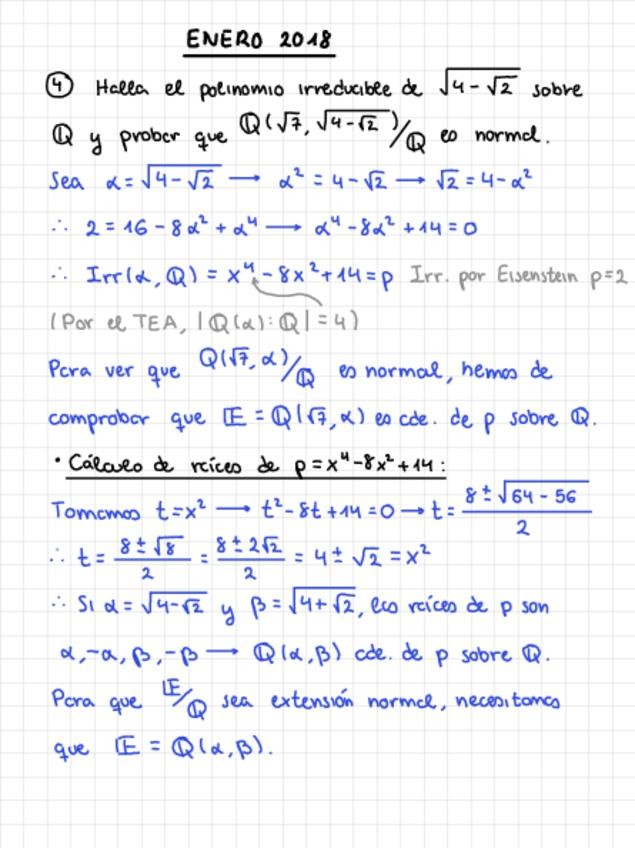 ENERO 2018
④ Halla el polinomio irreducible de √(4-√2) sobre
ℚ y probar que ℚ(√7, √(4-√2))/ℚ es normal.
Sea α = √(4-√2) ⟶ α² = 4-√2 ⟶ √2 = 4-α²
∴ 2 = 16 - 8α² + α⁴ ⟶ α⁴ - 8α² + 14 = 0
∴ Irr(α, ℚ) = x⁴ - 8x² + 14 = p Irr. por Eisenstein p=2
(Por el TEA, |ℚ(α):ℚ| = 4)
Para ver que ℚ(√7, α)/ℚ es normal, hemos de
comprobar que 𝔼 = ℚ(√7, α) es cde. de p sobre ℚ.
• Cálculo de raíces de p = x⁴ - 8x² + 14 :
Tomamos t = x² ⟶ t² - 8t + 14 = 0 ⟶ t = (8 ± √(64 - 56))/2
∴ t = (8 ± √8)/2 = (8 ± 2√2)/2 = 4 ± √2 = x²
∴ Si α = √(4-√2) y β = √(4+√2), las raíces de p son
α, -α, β, -β ⟶ ℚ(α, β) cde. de p sobre ℚ.
Para que 𝔼/ℚ sea extensión normal, necesitamos
que 𝔼 = ℚ(α, β).